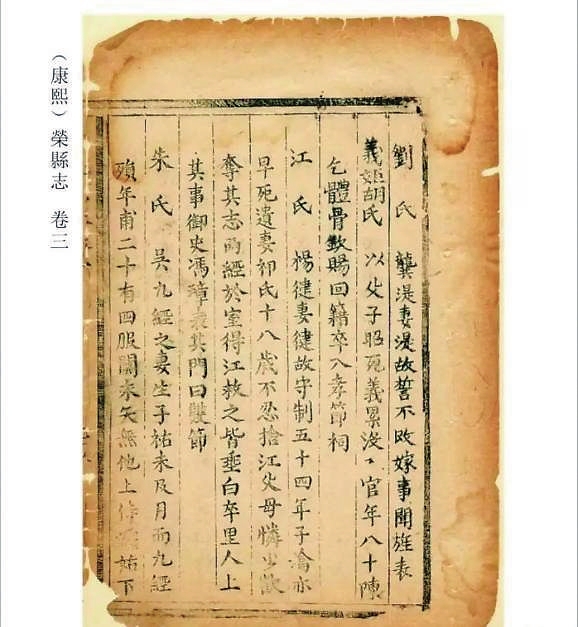 （康熙）榮縣志　卷三
劉氏　龔湜妻湜故誓不改嫁事聞旌表
義姬胡氏　以父子昭死義累没入官年八十陳
乞體骨歎賜回籍卒入孝節祠
江氏　楊健妻健故守制五十四年子瀹亦
早死遺妻祁氏十八歲不忍捨江父母憐少欲
奪其志兩經於室得江救之皆垂白卒里人上
其事御史馮璋表其門曰雙節
朱氏　吳九經之妻生子祐未及月而九經
殞年甫二十有四服闋未矢無他上侍姑下